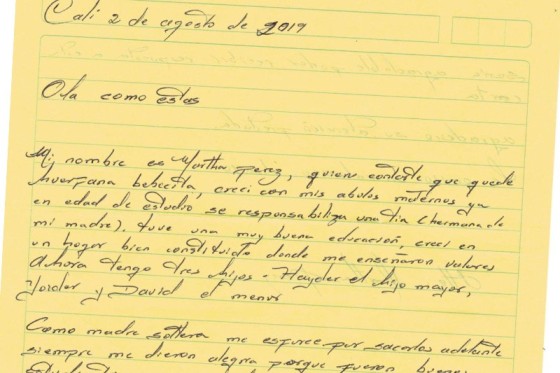 Cali 2 de agosto de 2019
Ola como estas
Mi nombre es Martha Perez, quiero contarte que quede
huerfana bebecita, creci con mis abulos maternos ya
en edad de estudio se responsabiliza una tia (hermana de
mi madre). tuve una muy buena educación, creci en
un hogar bien constituido donde me enseñaron valores
Ahora tengo tres hijos - Hayder el hijo mayor,
y David el menor
Como madre soltera me esforce por sacarlos adelante
siempre me dieron alegria porque fueron buenos